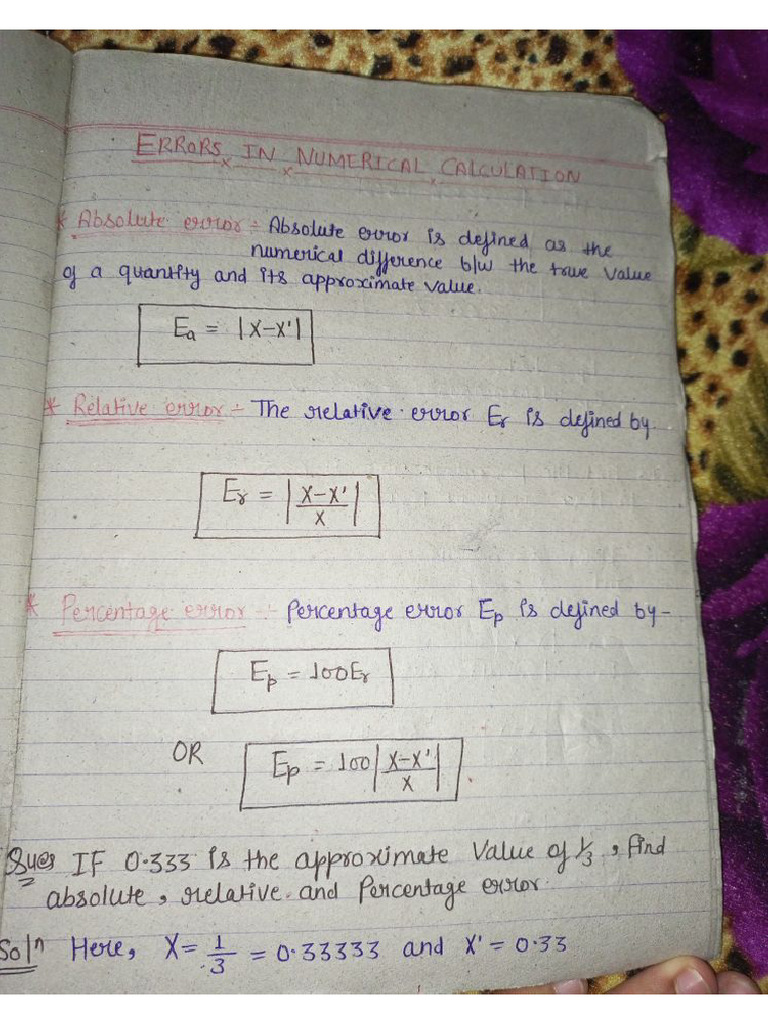 ERRORS IN NUMERICAL CALCULATION
* Absolute error :- Absolute error is defined as the
numerical difference b/w the true value
of a quantity and its approximate value.
Ea = |X-X'|
* Relative error :- The relative error Er is defined by
Er = |X-X'/X|
* Percentage error :- Percentage error Ep is defined by-
Ep = 100Er
OR Ep = 100|X-X'/X|.
Ques IF 0.333 is the approximate value of 1/3, find
absolute, relative and Percentage error.
Solⁿ Here, X = 1/3 = 0.33333 and X' = 0.33